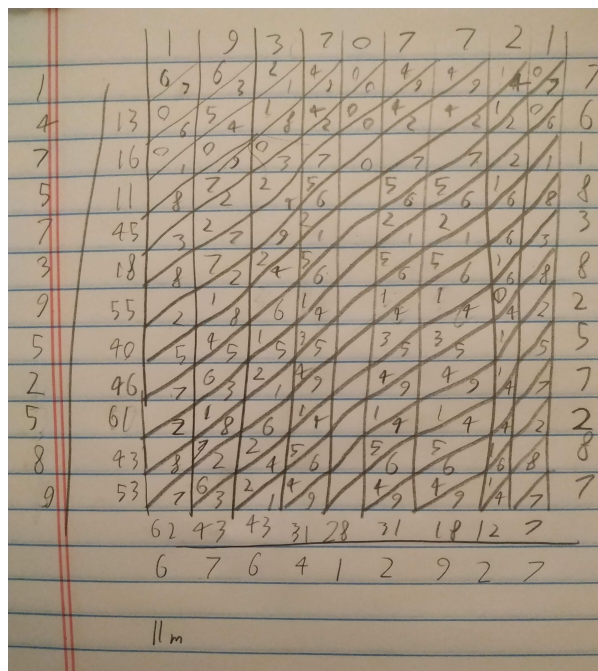 1 9 3 7 0 7 7 2 1
1 6 7 6 3 2 1 4 9 0 0 4 9 4 9 1 4 0 7 7
4 13 0 6 5 4 1 8 4 2 0 0 4 2 4 2 1 2 0 6 6
7 16 0 1 0 9 0 3 7 0 7 7 2 1 1
5 11 8 7 2 2 4 5 6 5 6 5 6 1 6 8 8
7 45 3 2 7 9 2 1 2 1 2 1 6 3 3
3 18 8 7 2 2 4 5 6 5 6 5 6 1 6 8 8
9 55 2 1 8 6 1 4 1 4 1 4 0 4 2 2
5 40 5 4 5 1 5 3 5 3 5 3 5 1 5 5
2 46 7 6 3 2 1 4 9 4 9 4 9 1 4 7 7
5 61 2 1 8 6 1 4 1 4 1 4 4 2 2
8 43 8 7 2 2 4 5 6 5 6 5 6 1 6 8 8
9 53 7 6 3 2 1 4 9 4 9 4 9 1 4 7 7
62 43 43 31 28 31 18 12 7
6 7 6 4 1 2 9 2 7
11m